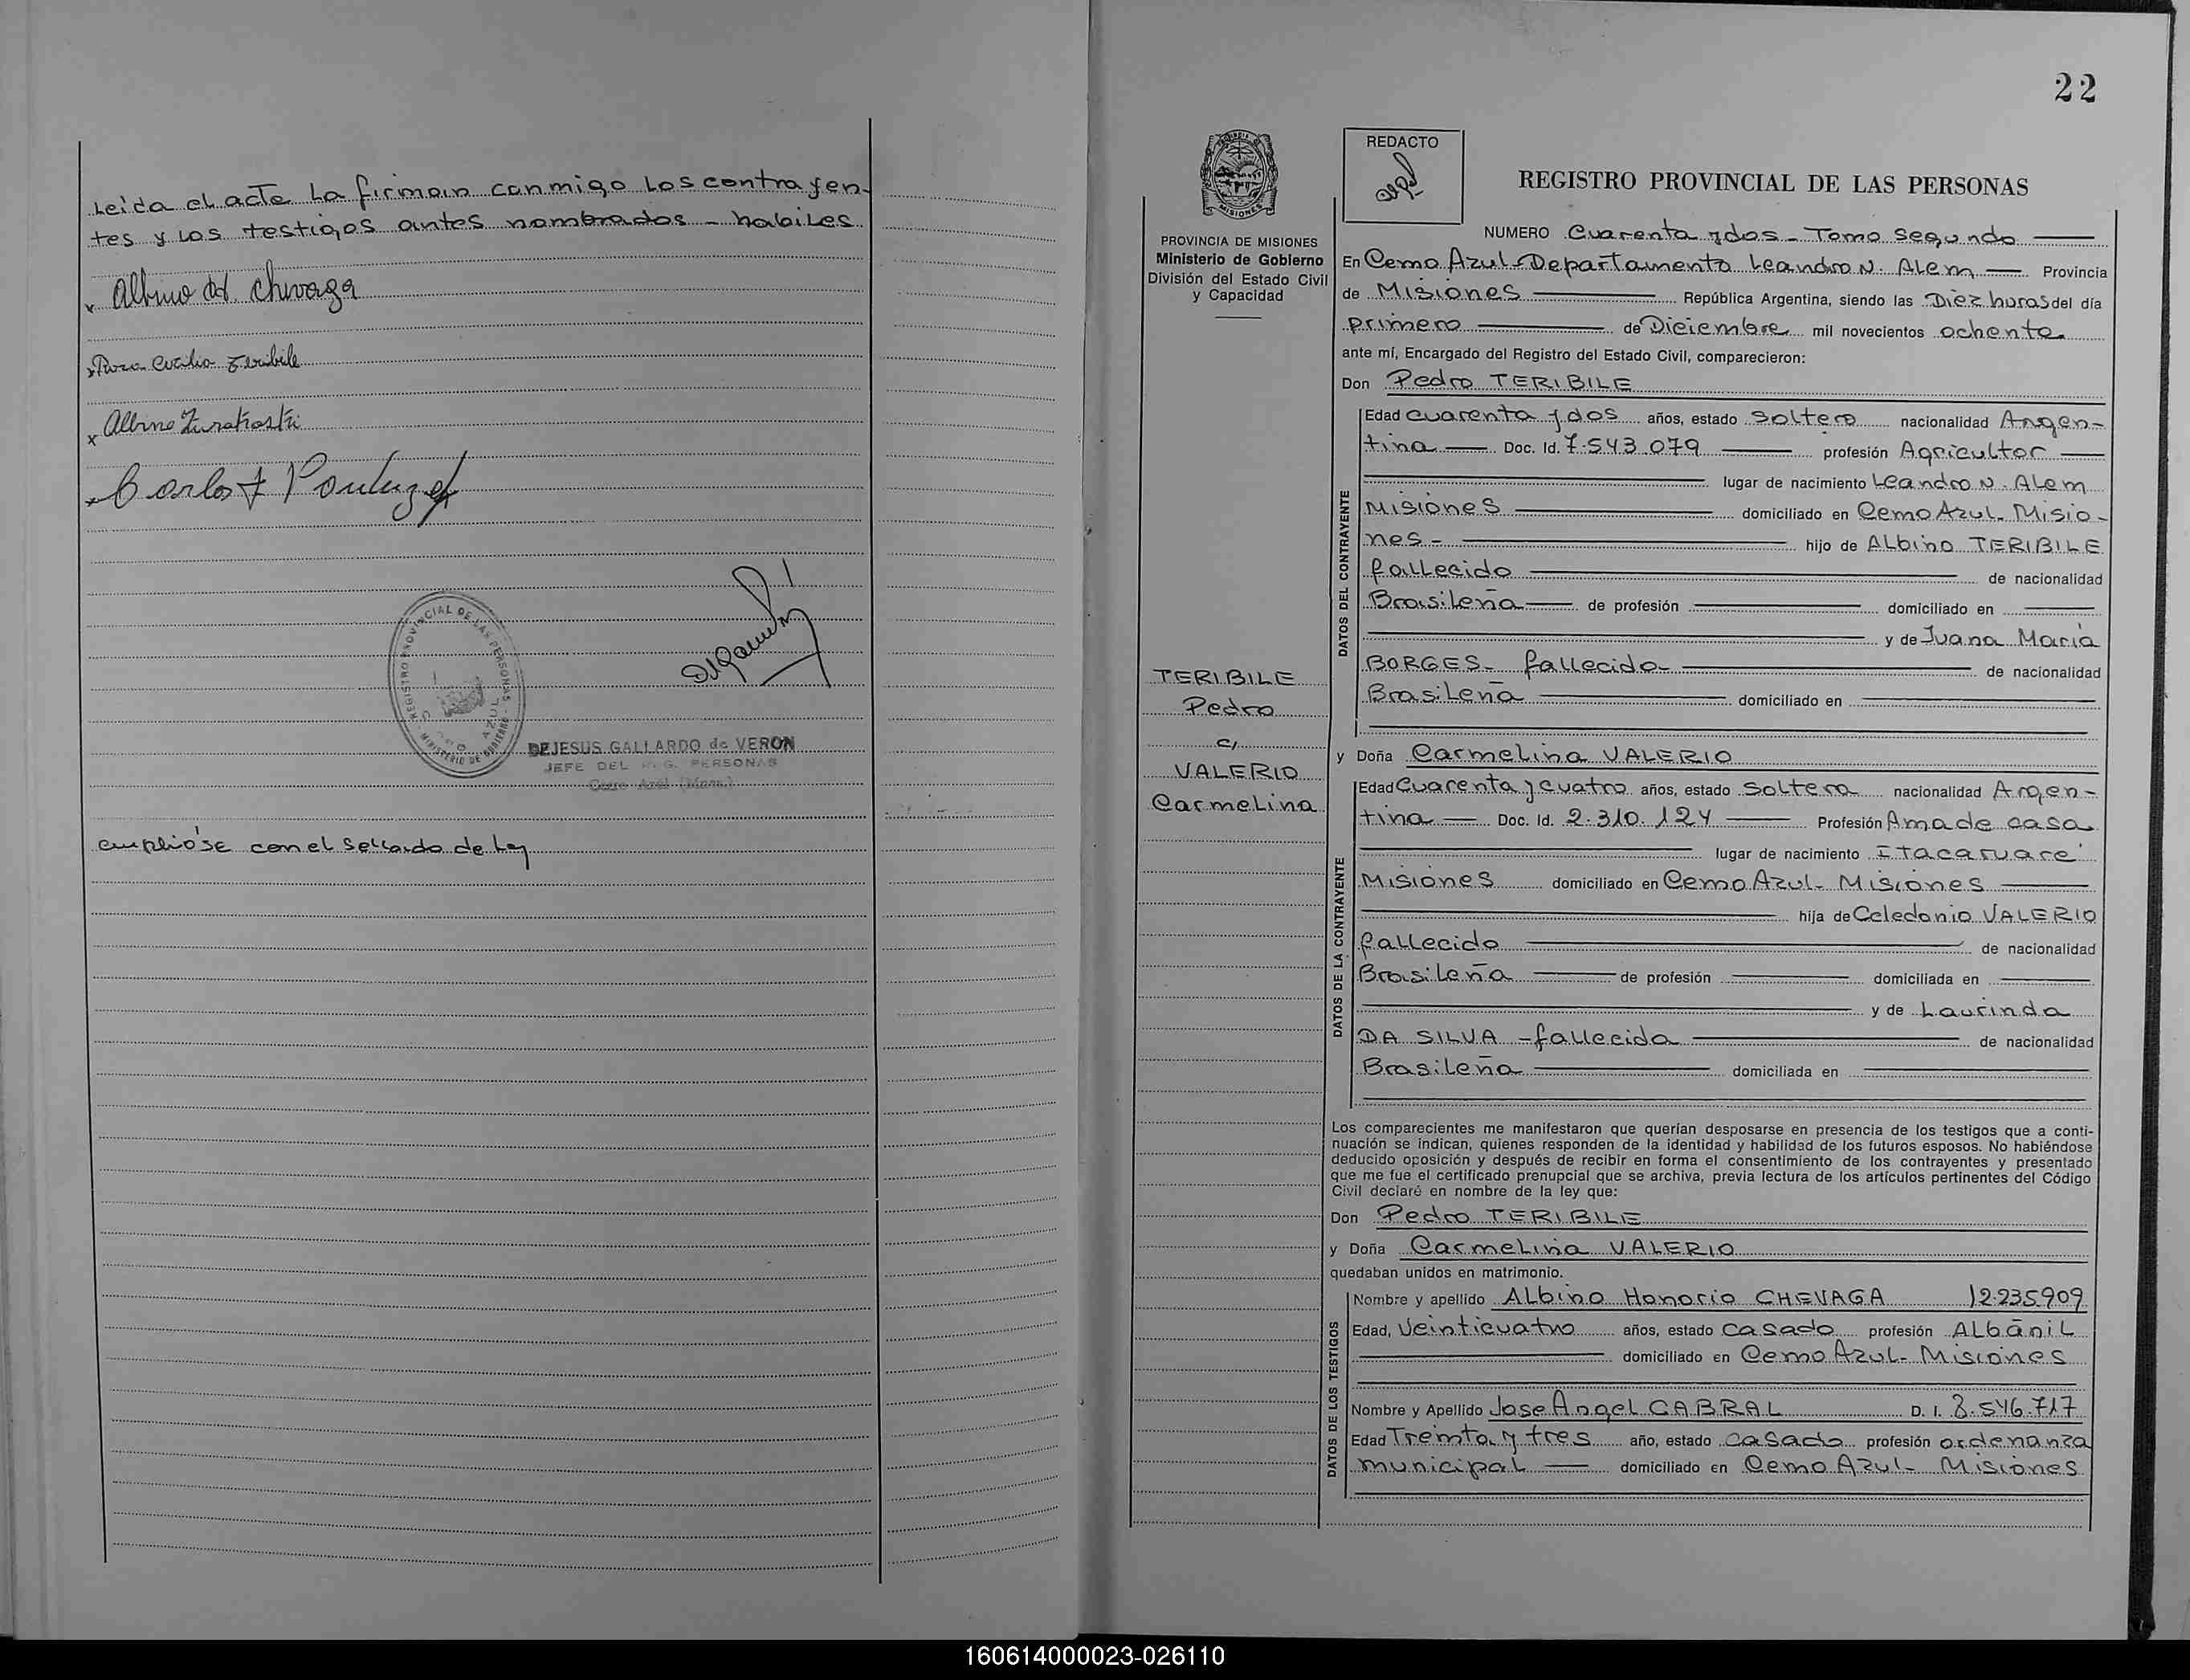 Leida el acta La firman conmigo Los contrayen-
tes y Los testigos antes nombrados - habiles
x Albino H. Chevaga
x Rosa Cecilia Teribile
x Albino
x Carlos
REGISTRO PROVINCIAL DE LAS PERSONAS
MINISTERIO DE GOBIERNO
DEJESUS GALLARDO de VERON
JEFE DEL R. G. PERSONAS
Cerro Azul (Mnes.)
cumplióse con el Sellado de Ley
22
PROVINCIA DE MISIONES
Ministerio de Gobierno
División del Estado Civil
y Capacidad
TERIBILE
Pedro
c/
VALERIO
Carmelina
REDACTO
REGISTRO PROVINCIAL DE LAS PERSONAS
NUMERO Cuarenta y dos - Tomo Segundo
En Cerro Azul - Departamento Leandro N. Alem Provincia
de Misiones República Argentina, siendo las Diez horas del día
primero de Diciembre mil novecientos ochenta
ante mí, Encargado del Registro del Estado Civil, comparecieron:
Don Pedro TERIBILE
DATOS DEL CONTRAYENTE
Edad cuarenta y dos años, estado Soltero nacionalidad Argen-
tina Doc. Id. 7.543.079 profesión Agricultor
lugar de nacimiento Leandro N. Alem
Misiones domiciliado en Cerro Azul - Misio-
nes - hijo de Albino TERIBILE
fallecido de nacionalidad
Brasileña de profesión domiciliado en
y de Juana María
BORGES - fallecida - de nacionalidad
Brasileña domiciliado en
y Doña Carmelina VALERIO
DATOS DE LA CONTRAYENTE
Edad Cuarenta y cuatro años, estado Soltera nacionalidad Argen-
tina Doc. Id. 2.310.124 Profesión Ama de casa
lugar de nacimiento Itacaruaré
Misiones domiciliado en Cerro Azul - Misiones
hija de Celedonio VALERIO
fallecido de nacionalidad
Brasileña de profesión domiciliada en
y de Laurinda
DA SILVA - fallecida de nacionalidad
Brasileña domiciliada en
Los comparecientes me manifestaron que querían desposarse en presencia de los testigos que a conti-
nuación se indican, quienes responden de la identidad y habilidad de los futuros esposos. No habiéndose
deducido oposición y después de recibir en forma el consentimiento de los contrayentes y presentado
que me fue el certificado prenupcial que se archiva, previa lectura de los artículos pertinentes del Código
Civil declaré en nombre de la ley que:
Don Pedro TERIBILE
y Doña Carmelina VALERIO
quedaban unidos en matrimonio.
DATOS DE LOS TESTIGOS
Nombre y apellido Albino Honorio CHEVAGA 12.235.909
Edad, Veinticuatro años, estado casado profesión Albãnil
domiciliado en Cerro Azul - Misiones
Nombre y Apellido Jose Angel CABRAL D. I. 8.546.717
Edad Treinta y tres año, estado casado profesión ordenanza
municipal domiciliado en Cerro Azul - Misiones
160614000023-026110